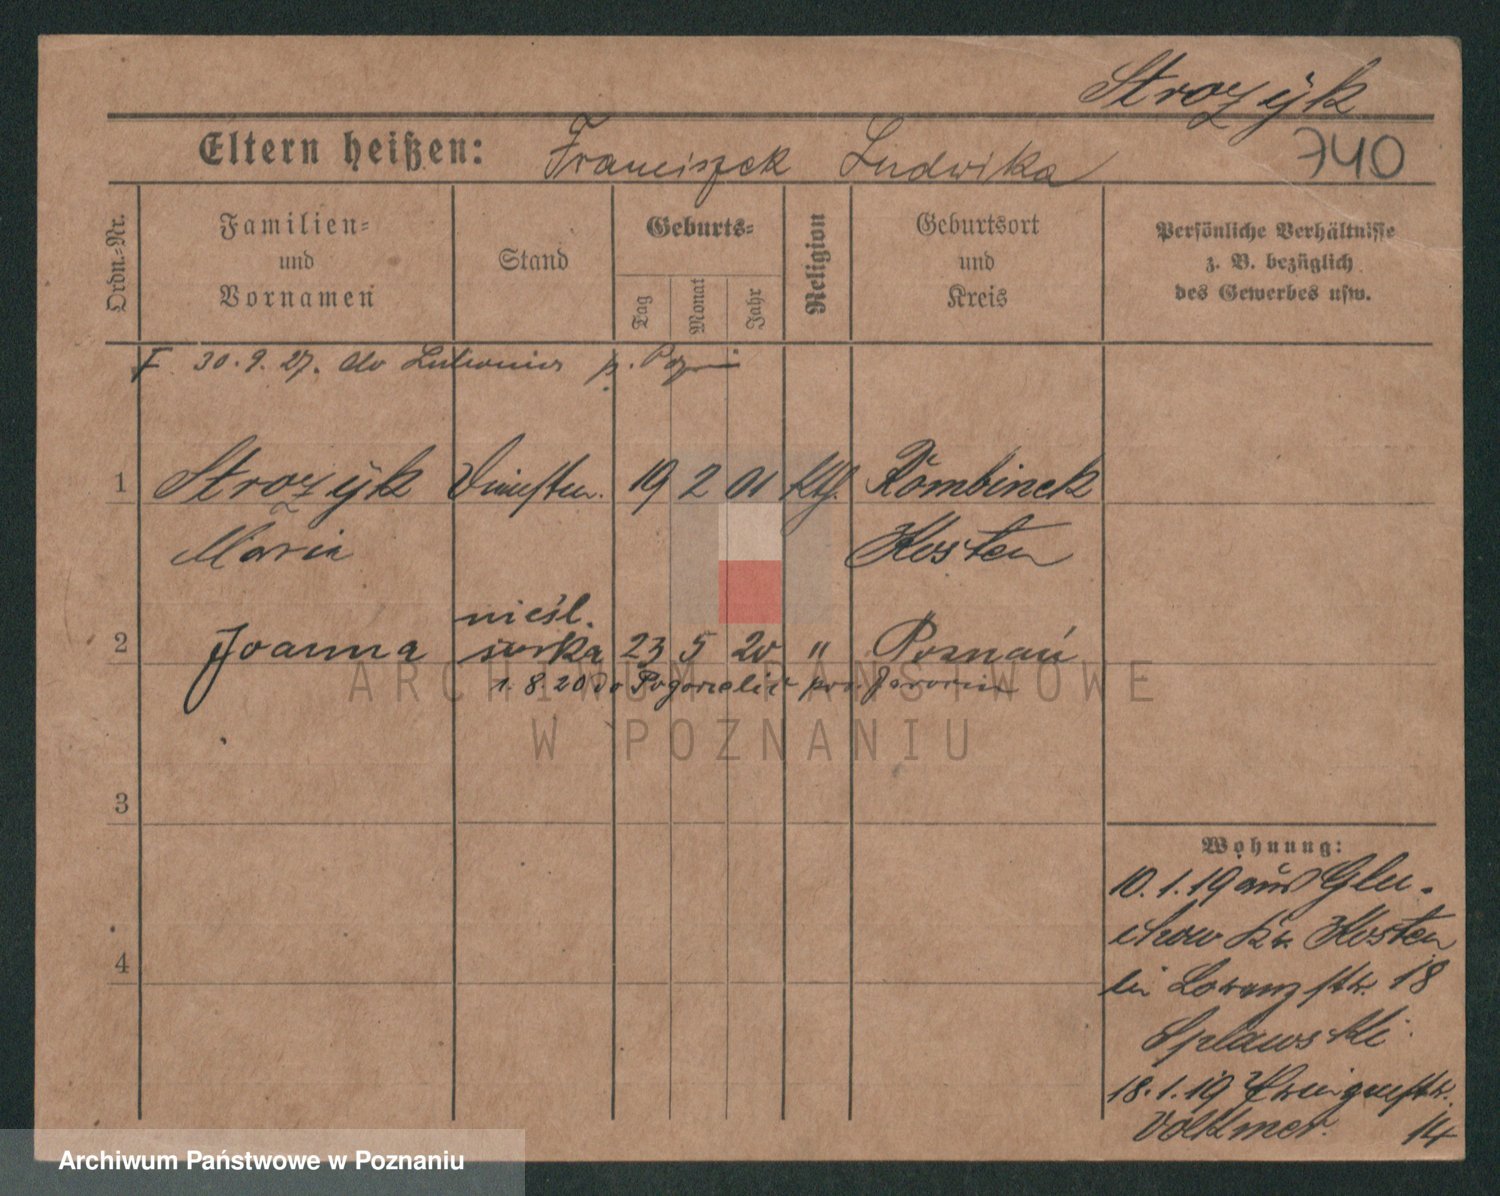 Strozÿk
740
Eltern heißen: Franciszek Ludwika
Ordn.-Nr.
Familien-
und
Vornamen
Stand
Geburts-
Tag
Monat
Jahr
Religion
Geburtsort
und
Kreis
Persönliche Verhältnisse
z. B. bezüglich
des Gewerbes usw.
30.9.27. do p.
1 Strozÿk 19 2 01 Kth. Rombinek
Maria Kosten
nieśl.
2 Joanna córka 23 5 20 " Poznań
1.8.20 do Pogorzelic pow. Jarocin
ARCHIWUM PAŃSTWOWE
W POZNANIU
3
4
Wohnung:
10.1.19 aus Glu-
chow Kr. Kosten
bei Lorenzstr. 18
Splawski
18.1.19
Volkmer. 14
Archiwum Państwowe w Poznaniu